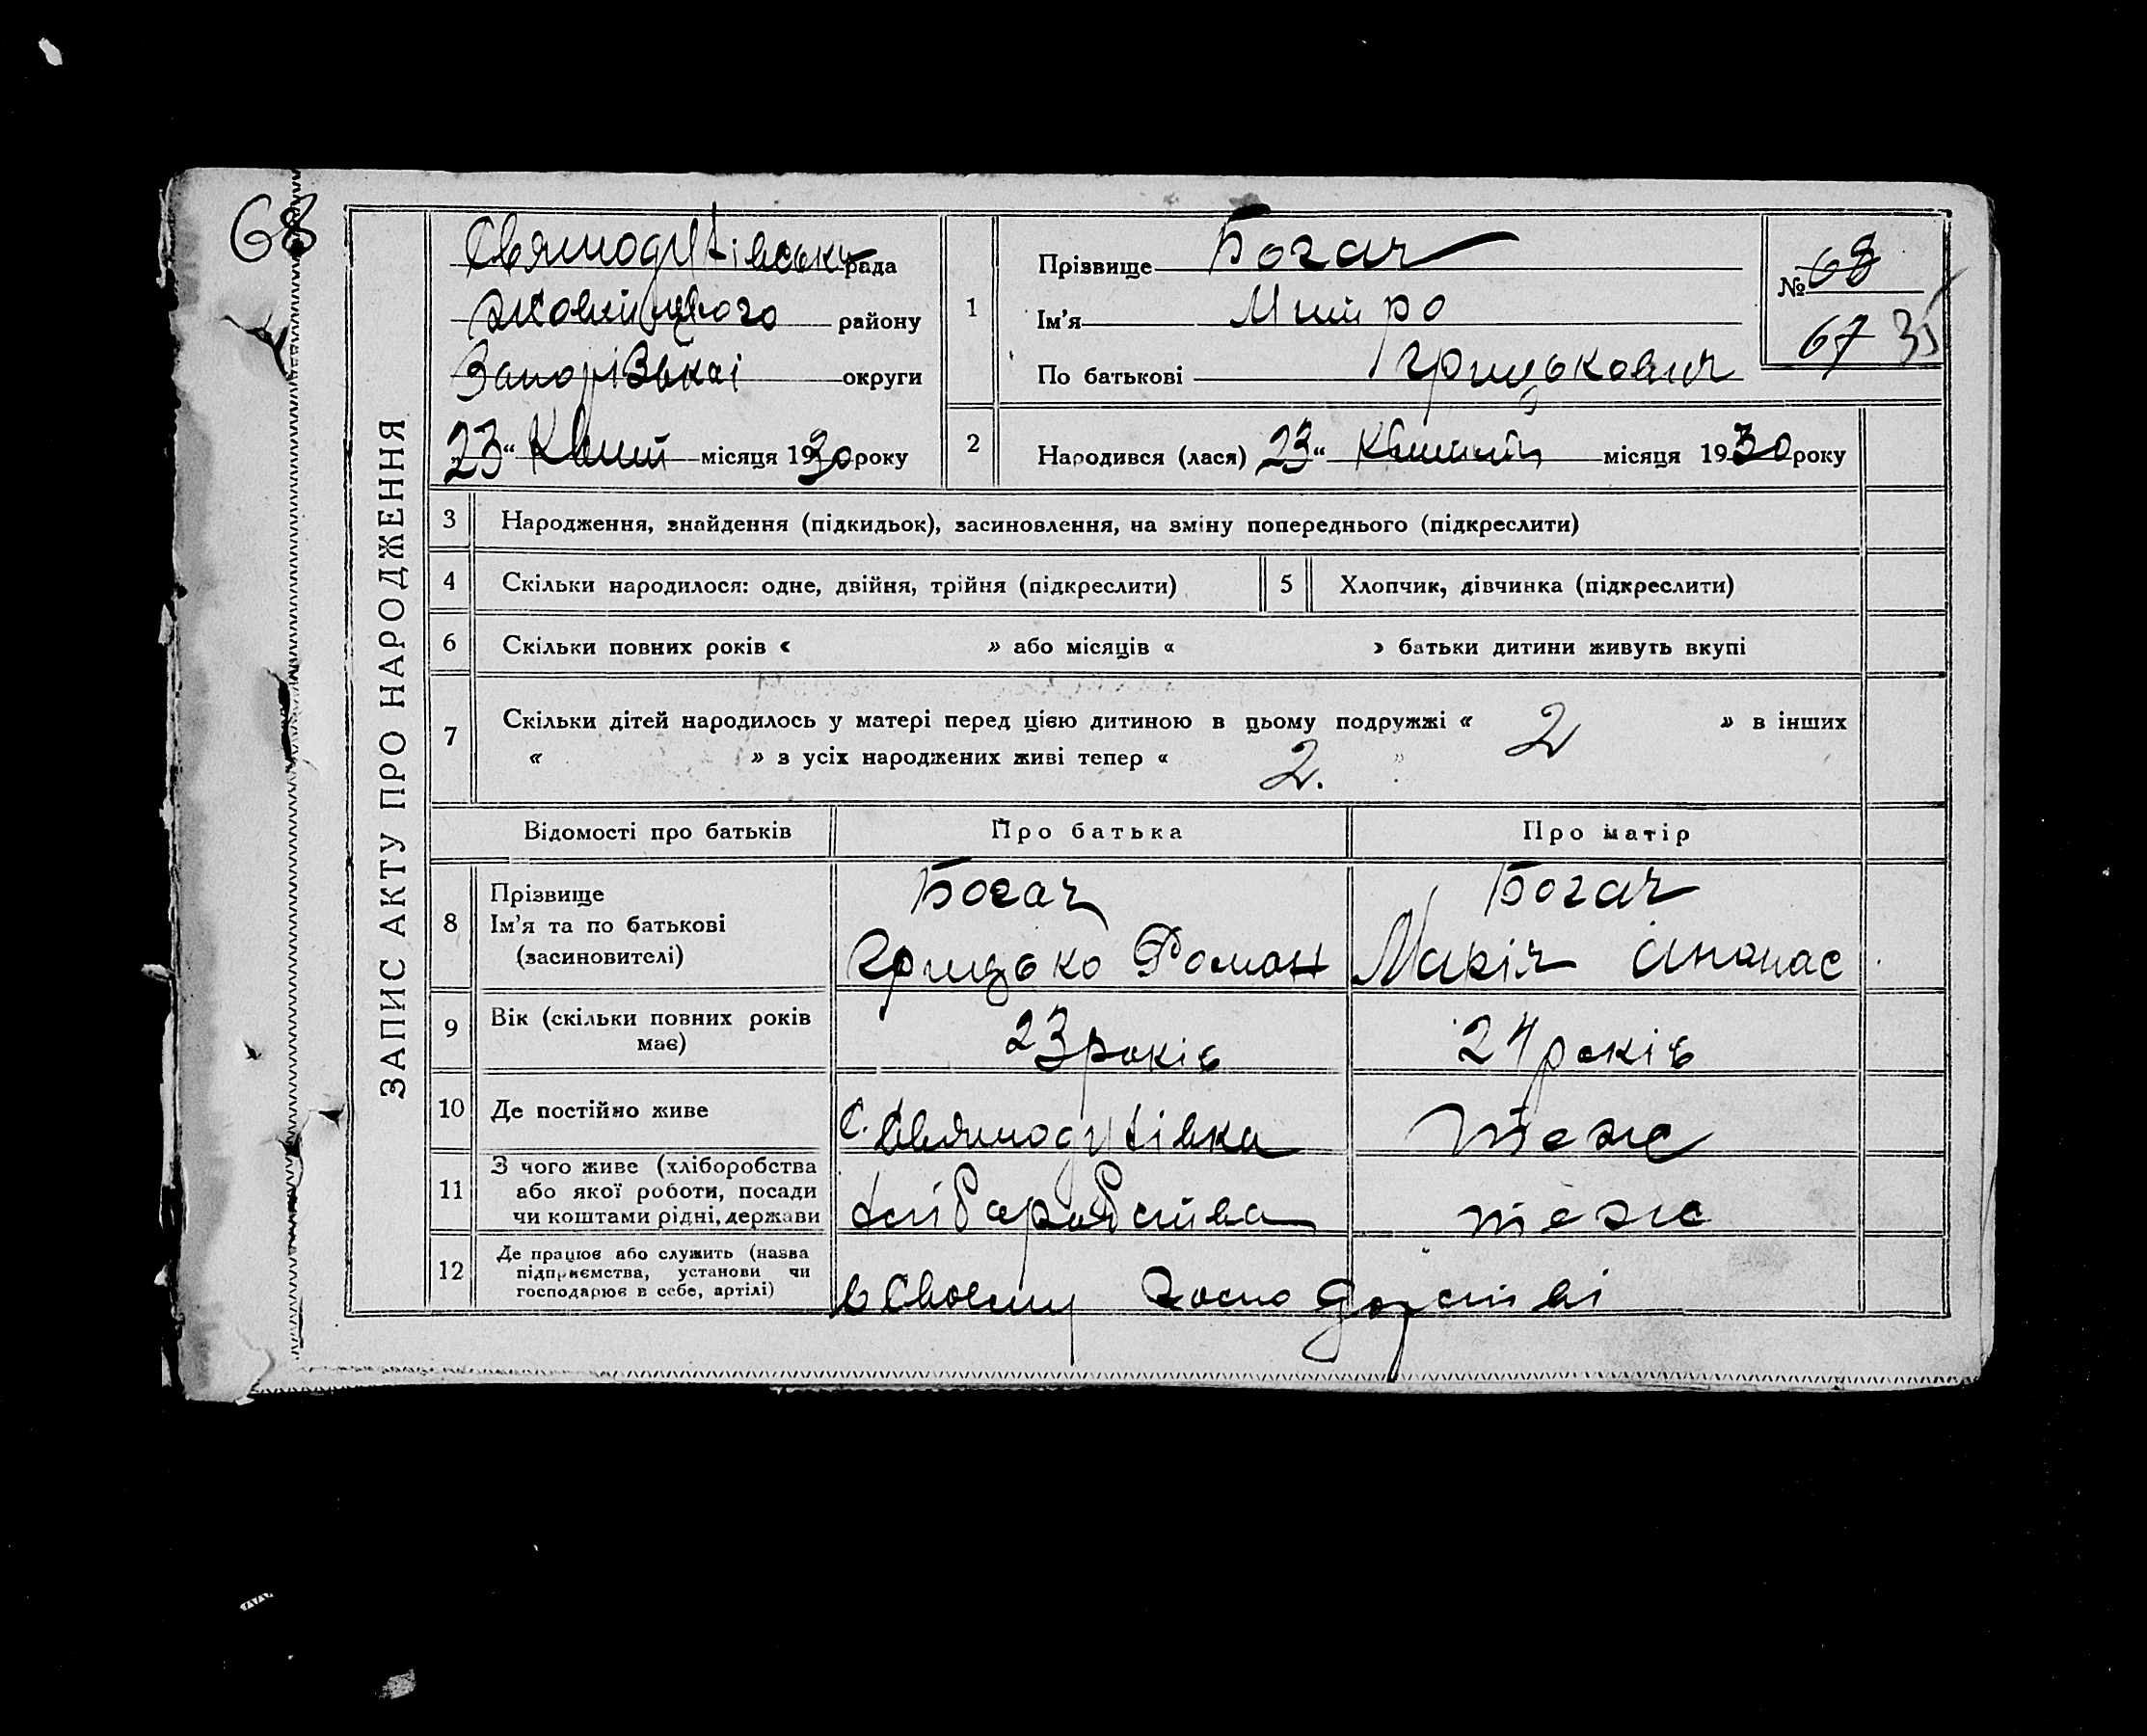 68
ЗАПИС АКТУ ПРО НАРОДЖЕННЯ
Святодухівська рада
району
Запорізької округи
„23“ Квіт місяця 1930 року
1
Прізвище Богач
Ім’я Митро
По батькові Грицькович
№ 68
67 35
2
Народився (лася) „23“ Квітня місяця 1930 року
3 Народження, знайдення (підкидьок), засиновлення, на зміну попереднього (підкреслити)
4 Скільки народилося: одне, двійня, трійня (підкреслити)
5 Хлопчик, дівчинка (підкреслити)
6 Скільки повних років « » або місяців « » батьки дитини живуть вкупі
7 Скільки дітей народилось у матері перед цією дитиною в цьому подружжі « 2 » в інших
« » з усіх народжених живі тепер « 2. »
Відомості про батьків Про батька Про матір
8
Прізвище
Ім’я та по батькові
(засиновителі)
Богач
Грицько Роман
Богач
Марія Апанас
9
Вік (скільки повних років
має)
23 років
24 років
10 Де постійно живе
с. Святодухівка
теж
11
З чого живе (хліборобства
або якої роботи, посади
чи коштами рідні, держави
хліборобства
теж
12
Де працює або служить (назва
підприємства, установи чи
господарює в себе, артілі)
в своему господарстві